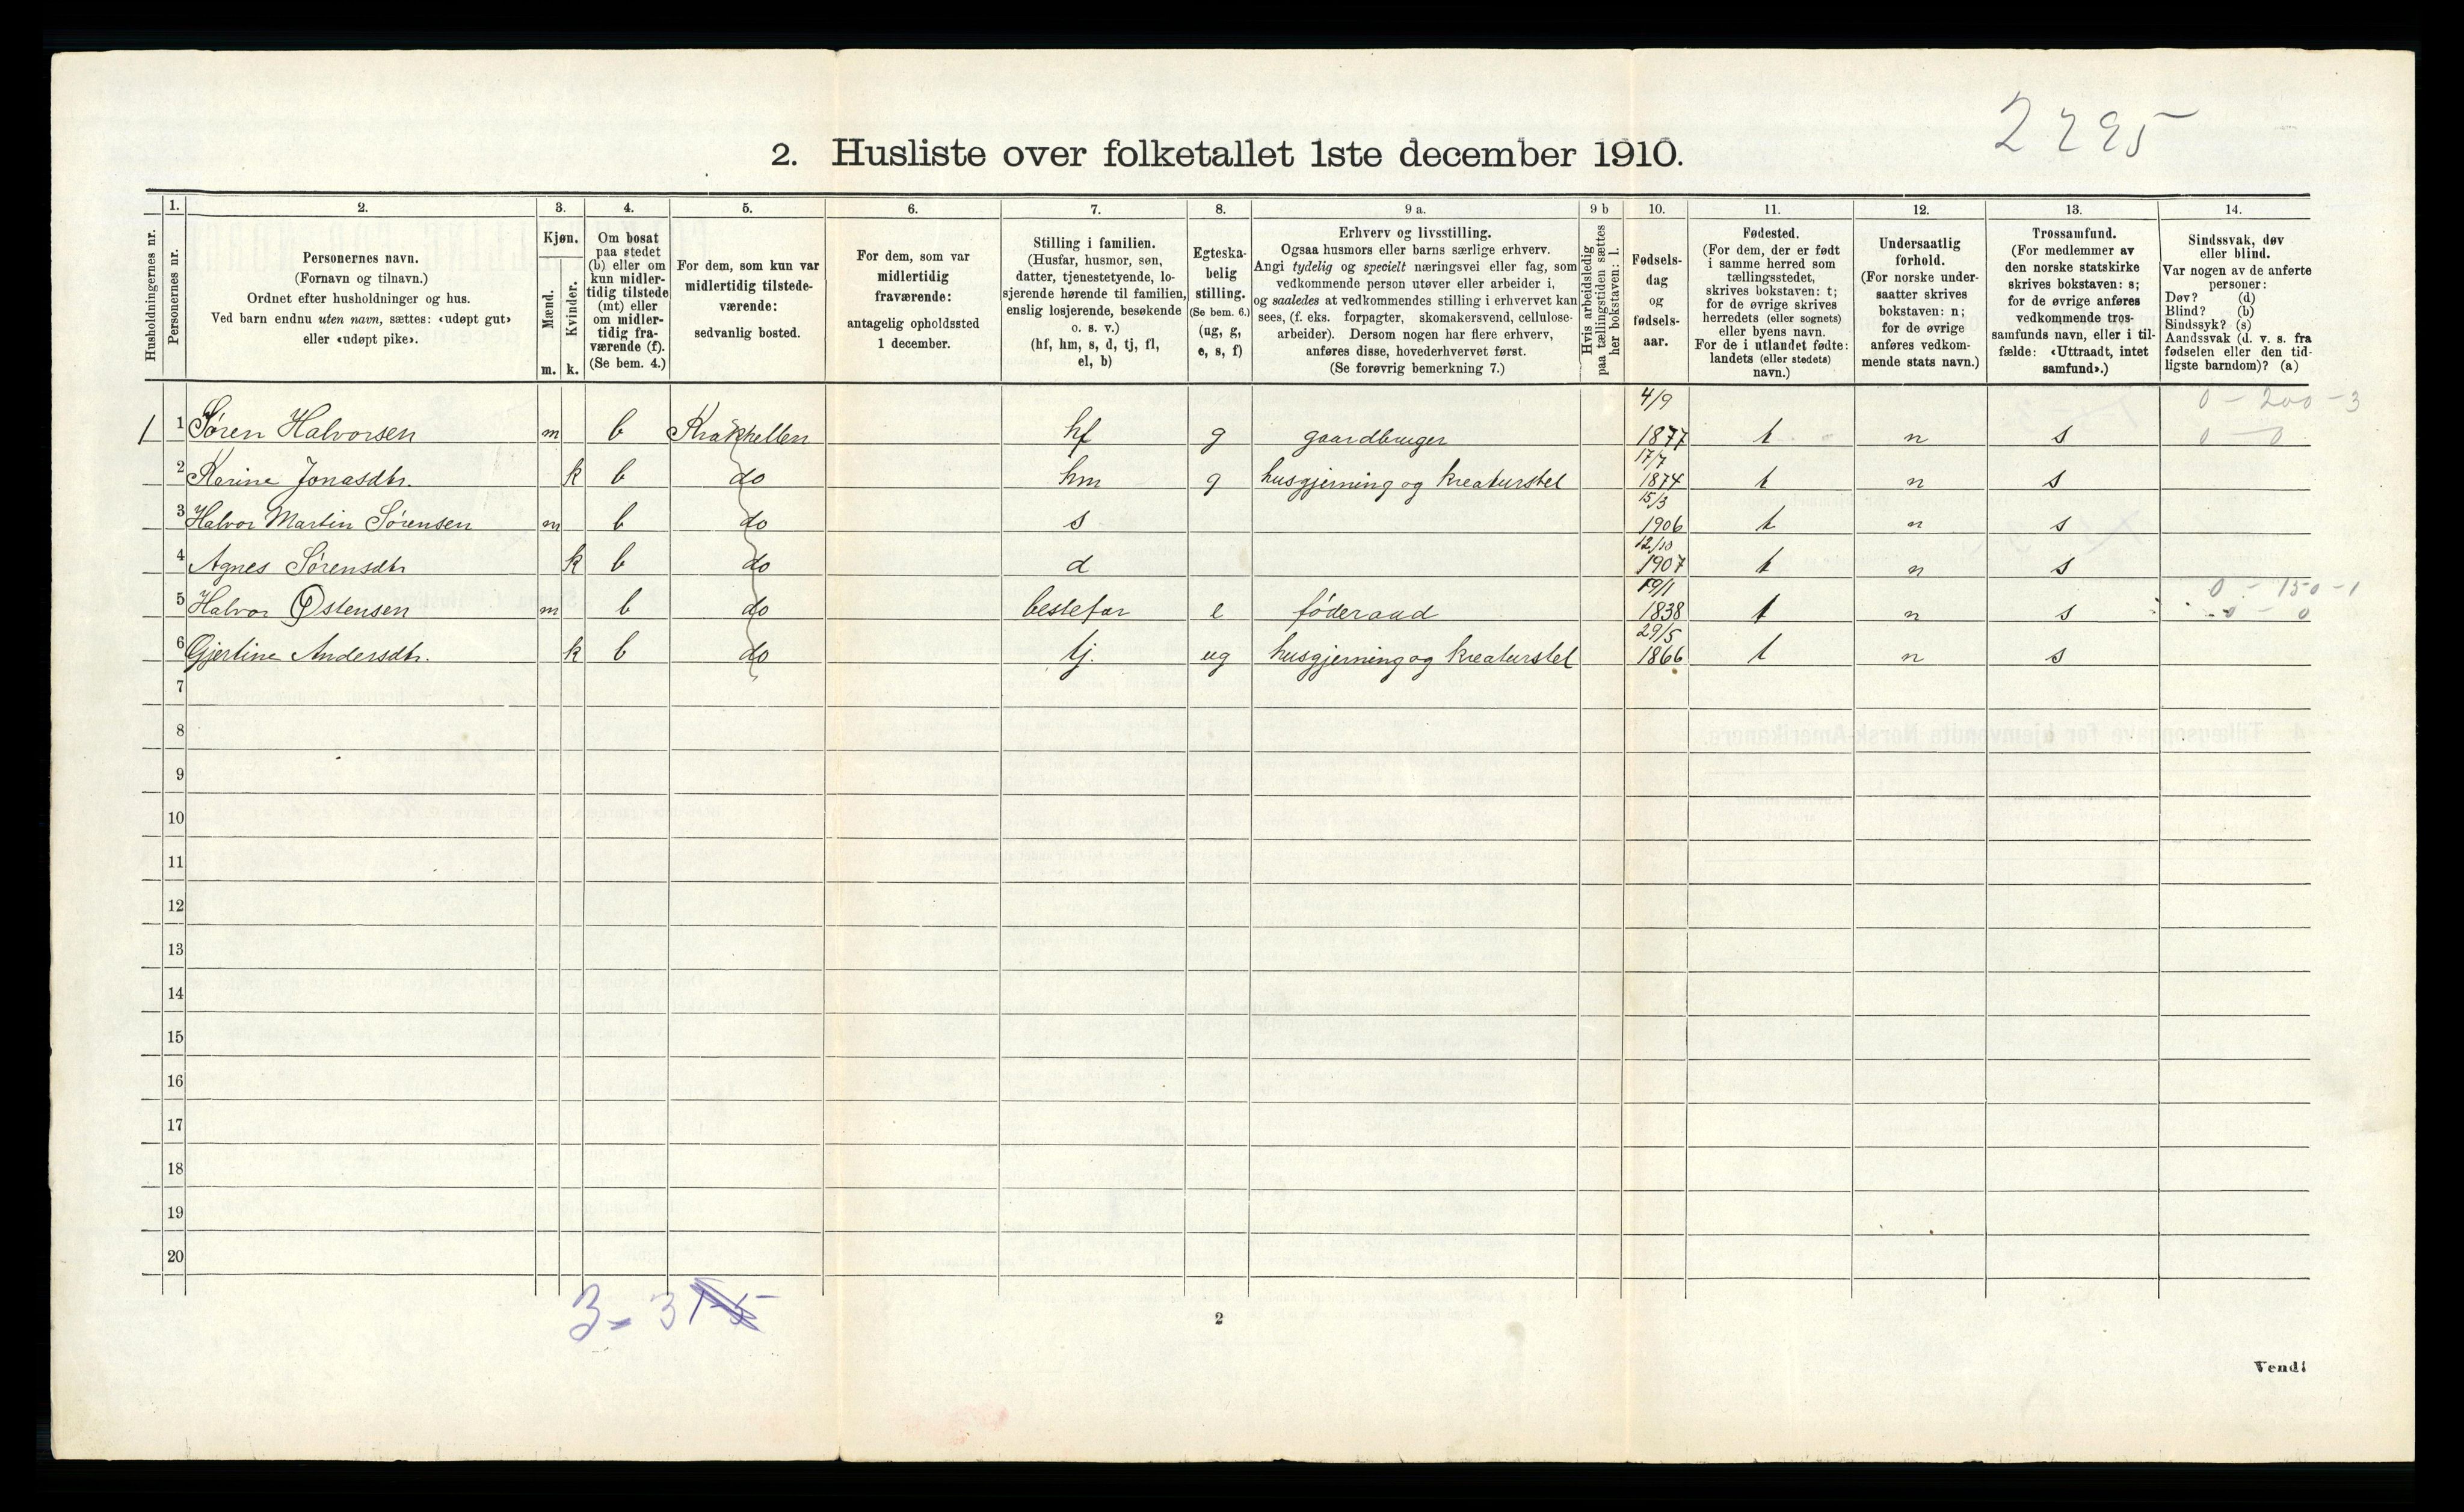 2295
2. Husliste over folketallet 1ste december 1910.
Husholdningernes nr.
1.
Personernes nr.
2.
Personernes navn.
(Fornavn og tilnavn.)
Ordnet efter husholdninger og hus.
Ved barn endnu uten navn, sættes: «udøpt gut»
eller «udøpt pike».
3.
Kjøn.
Mænd.
Kvinder.
m. k.
4.
Om bosat
paa stedet
(b) eller om
kun midler-
tidig tilstede
(mt) eller
om midler-
tidig fra-
værende (f).
(Se bem. 4.)
5.
For dem, som kun var
midlertidig tilstede-
værende:
sedvanlig bosted.
6.
For dem, som var
midlertidig
fraværende:
antagelig opholdssted
1 december.
7.
Stilling i familien.
(Husfar, husmor, søn,
datter, tjenestetyende, lo-
sjerende hørende til familien,
enslig losjerende, besøkende
o. s. v.)
(hf, hm, s, d, tj, fl,
el, b)
8.
Egteska-
belig
stilling.
(Se bem. 6.)
(ug, g,
e, s, f)
9 a.
Erhverv og livsstilling.
Ogsaa husmors eller barns særlige erhverv.
Angi tydelig og specielt næringsvei eller fag, som
vedkommende person utøver eller arbeider i,
og saaledes at vedkommendes stilling i erhvervet kan
sees, (f. eks. forpagter, skomakersvend, cellulose-
arbeider). Dersom nogen har flere erhverv,
anføres disse, hovederhvervet først.
(Se forøvrig bemerkning 7.)
9 b
Hvis arbeidsledig
paa tællingstiden sættes
her bokstaven: l.
10.
Fødsels-
dag
og
fødsels-
aar.
11.
Fødested.
(For dem, der er født
i samme herred som
tællingsstedet,
skrives bokstaven: t;
for de øvrige skrives
herredets (eller sognets)
eller byens navn.
For de i utlandet fødte:
landets (eller stedets)
navn.)
12.
Undersaatlig
forhold.
(For norske under-
saatter skrives
bokstaven: n;
for de øvrige
anføres vedkom-
mende stats navn.)
13.
Trossamfund.
(For medlemmer av
den norske statskirke
skrives bokstaven: s;
for de øvrige anføres
vedkommende tros-
samfunds navn, eller i til-
fælde: «Uttraadt, intet
samfund».)
14.
Sindssvak, døv
eller blind.
Var nogen av de anførte
personer:
Døv? (d)
Blind? (b)
Sindssyk? (s)
Aandssvak (d. v. s. fra
fødselen eller den tid-
ligste barndom)? (a)
4/9 0 - 200 - 3
1 1 Søren Halvorsen m b Krækhellen hf g gaardbruger 1877 t n s 0 - 0
17/7
2 Karine Jonasdtr. k b do hm g husgjerning og kreaturstel 1874 t n s
15/3
3 Halvor Martin Sørensen m b do s 1906 t n s
12/10
4 Agnes Sørensdtr k b do d 1907 t n s
19/1 0 - 150 - 1
5 Halvor Østensen m b do bestefar e føderaad 1838 t n s 0 - 0
29/5
6 Gjertine Andersdtr. k b do tj. ug husgjerning og kreaturstel 1866 t n s
7
8
9
10
11
12
13
14
15
16
17
18
19
20
3 - 3
2
Vend!